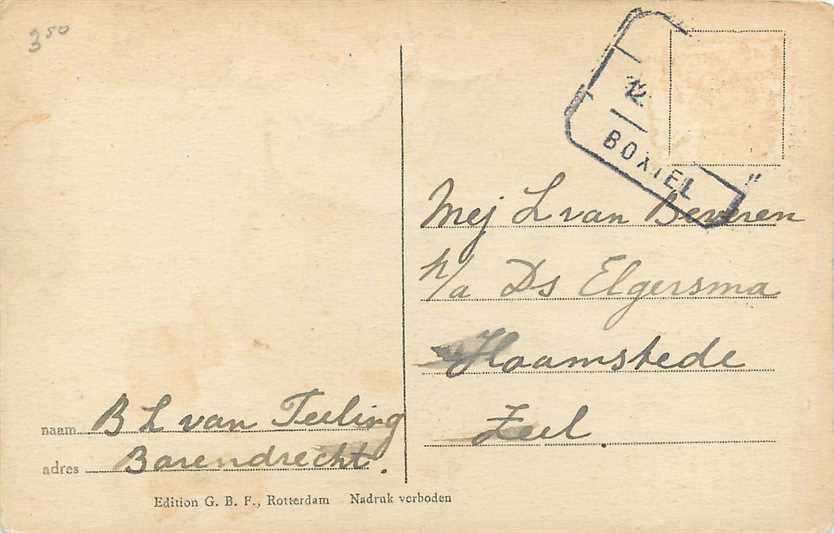 3 50
12
BOXTEL
Mej L van Beveren
p/a Ds Elgersma
Haamstede
Zeel.
naam B L van Teeling
adres Barendrecht.
Edition G. B. F., Rotterdam Nadruk verboden